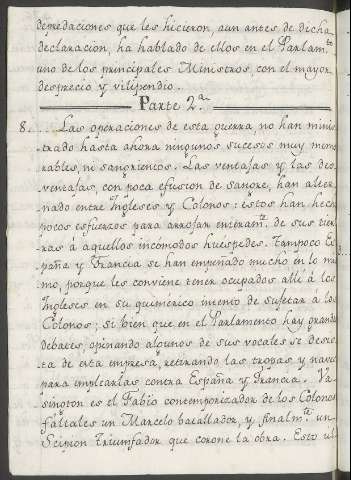 depredaciones que les hicieron, aun antes de dicha
declaracion, ha hablado de ellos en el Parlam.to
uno de los principales Ministros, con el mayor
desprecio y vilipendio.
Parte 2.a
8. Las operaciones de esta guerra no han minis
trado hasta ahora ningunos sucesos muy memo
rables, ni sangrientos. Las ventajas y las des
ventajas, con poca efusion de sangre, han alter
nado entre Ingleses y Colonos: estos han hech
pocos esfuerzos para arrojar enteram.te de sus tier
ras á aquellos incomodos huespedes. Tampoco Es
paña y Francia se han empeñado mucho en lo mis
mo, porque les conviene tener ocupados allí á los
Ingleses en su quimérico intento de sujetar á los
Colonos; si bien que en el Parlamento hay grande
debates, opinando algunos de sus vocales se desis
ta de esta empresa, retirando las tropas y naves
para emplearlas contra España y Francia. Va
sington es el Fabio contemporizador de los Colonos
faltales un Marcelo batallador, y finalm.te un
Scipion triunfador que corone la obra. Esto